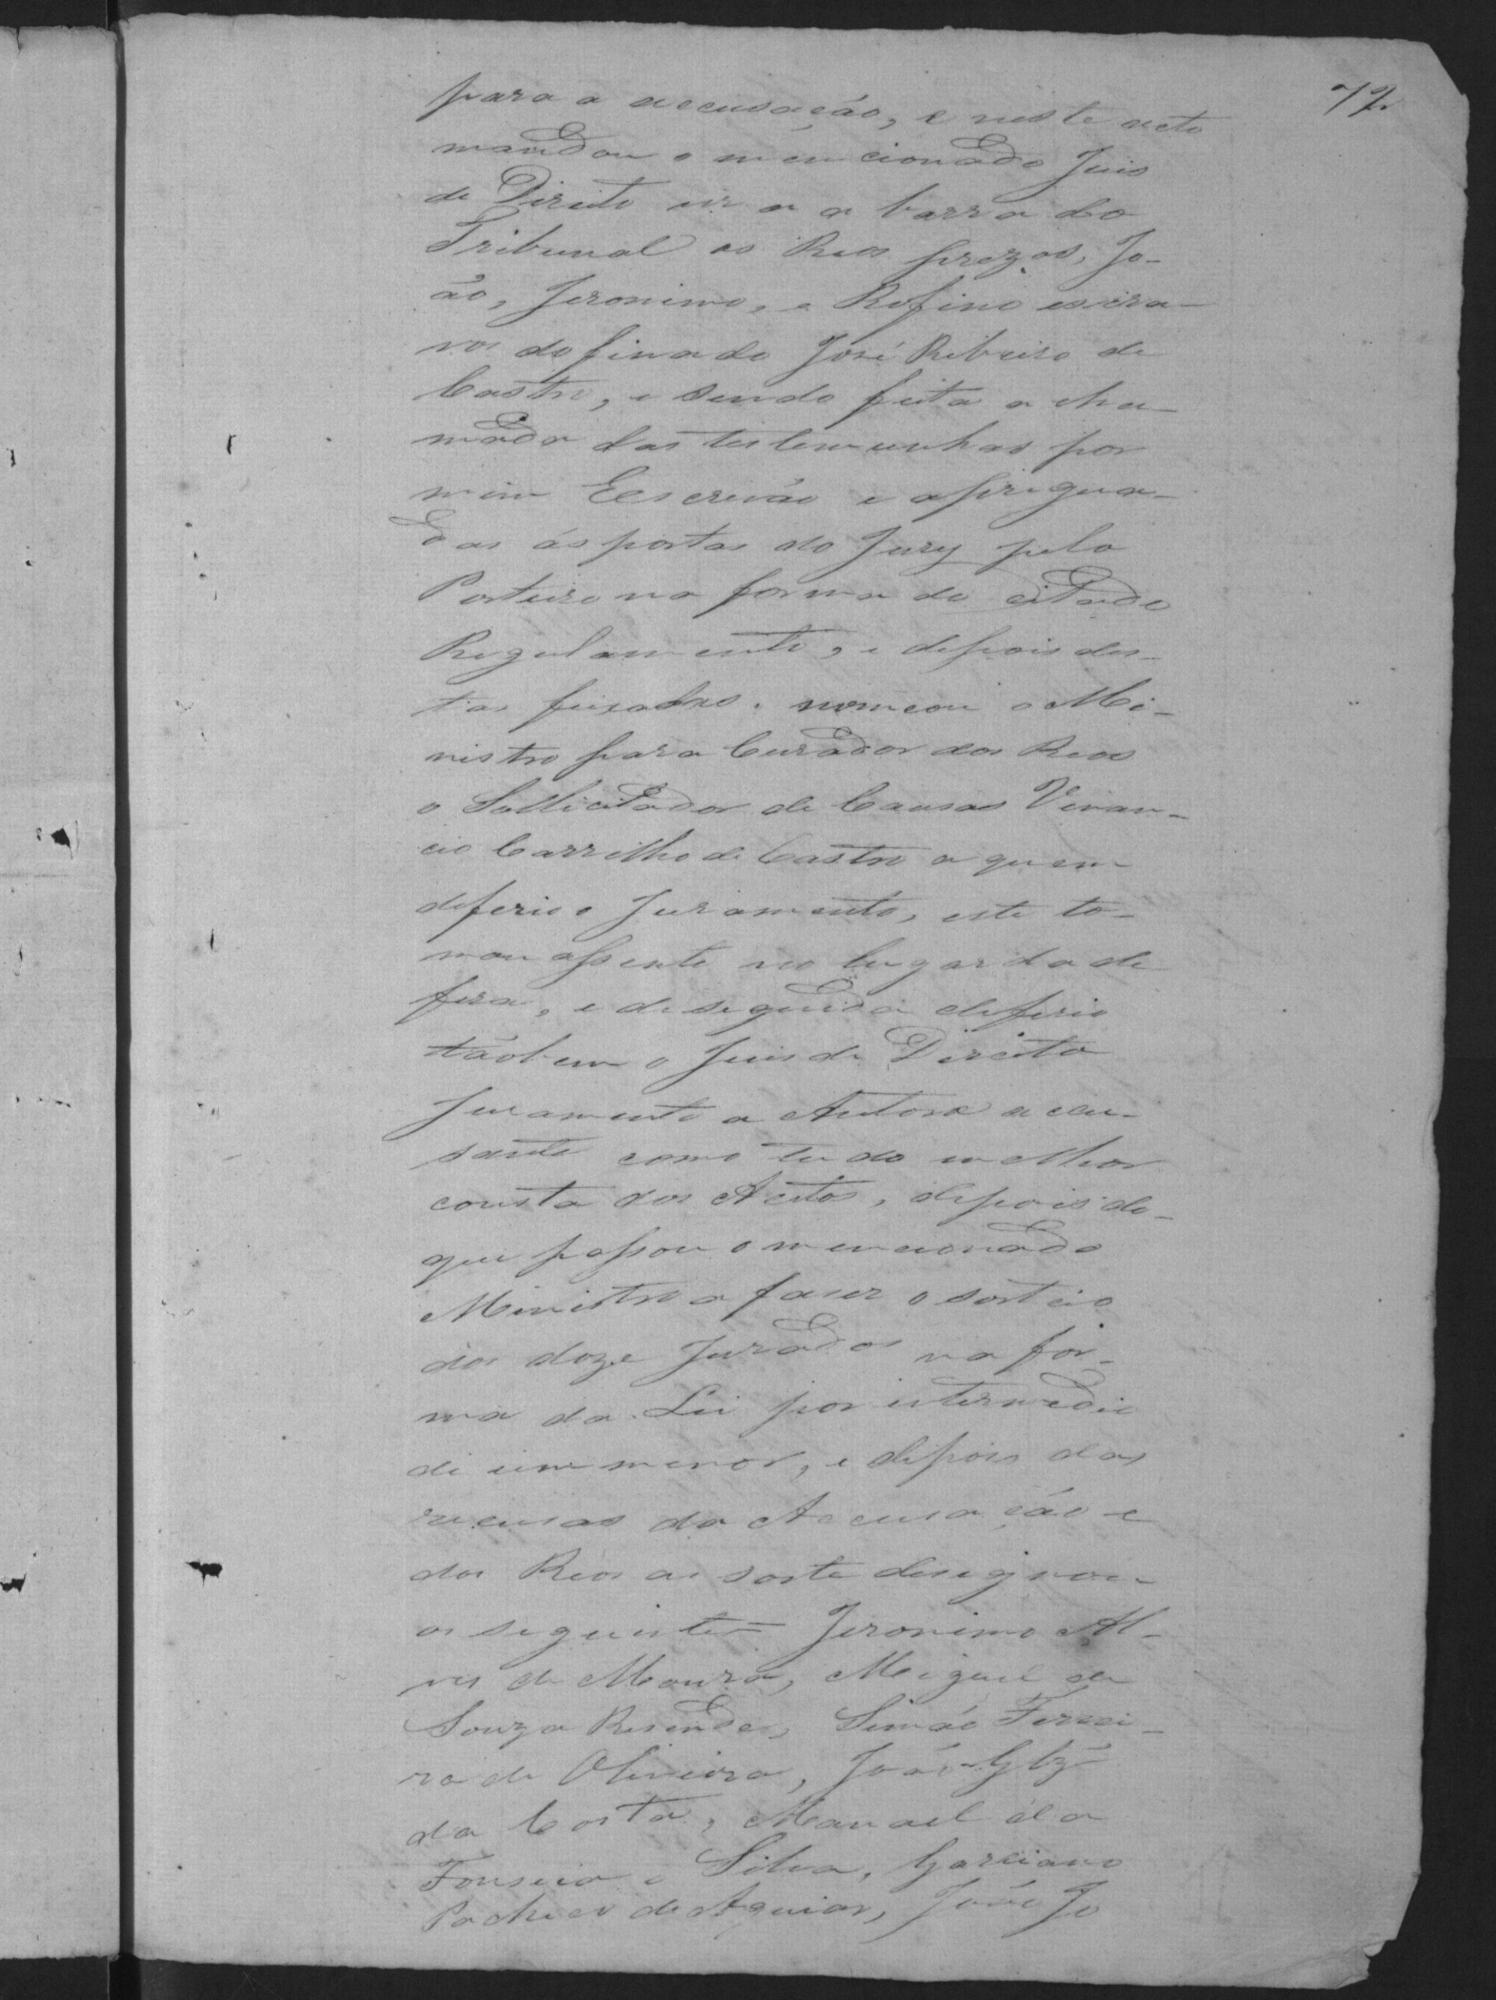 77
para a accusação, e neste acto
mandou o mencionado Juis
de Direito vir a a barra do
Tribunal os Reos prezos, Jo-
ão, Jeronimo, e Rofino escra-
vos do finado José Ribeiro de
Castro, e sendo feita a cha-
mada das testemunhas por
mim Escrivão e apregua-
das ás portas do Jury pelo
Porteiro na forma do citado
Regulamento, e depois des-
tas nomeou o Mi-
nistro para Curador dos Reos
o Sollicitador de Causas Venan-
cio Carrilho de Castro a quem
deferio o Juramento, este to-
mou assento no lugar da de
feza, e de seguida deferio
tãobem o Juis de Direito
Juramento a Autora accu-
sante como tudo melhor
consta dos Autos, depois do
que passou o mencionado
Ministro a faser o sorteio
dos doze Jurados na for-
ma da Lei por intermedio
de um menor, e depois das
recusas da Accusação e
dos Reos as sorte designou
os seguintes = Jeronimo Al-
ves de Moura, Miguel de
Souza Resende, Simão Ferrei-
ra de Oliveira, João Glz
da Costa, Manoel da
Fonseca e Silva, Garciano
Pacheco de Aguiar, João Jo